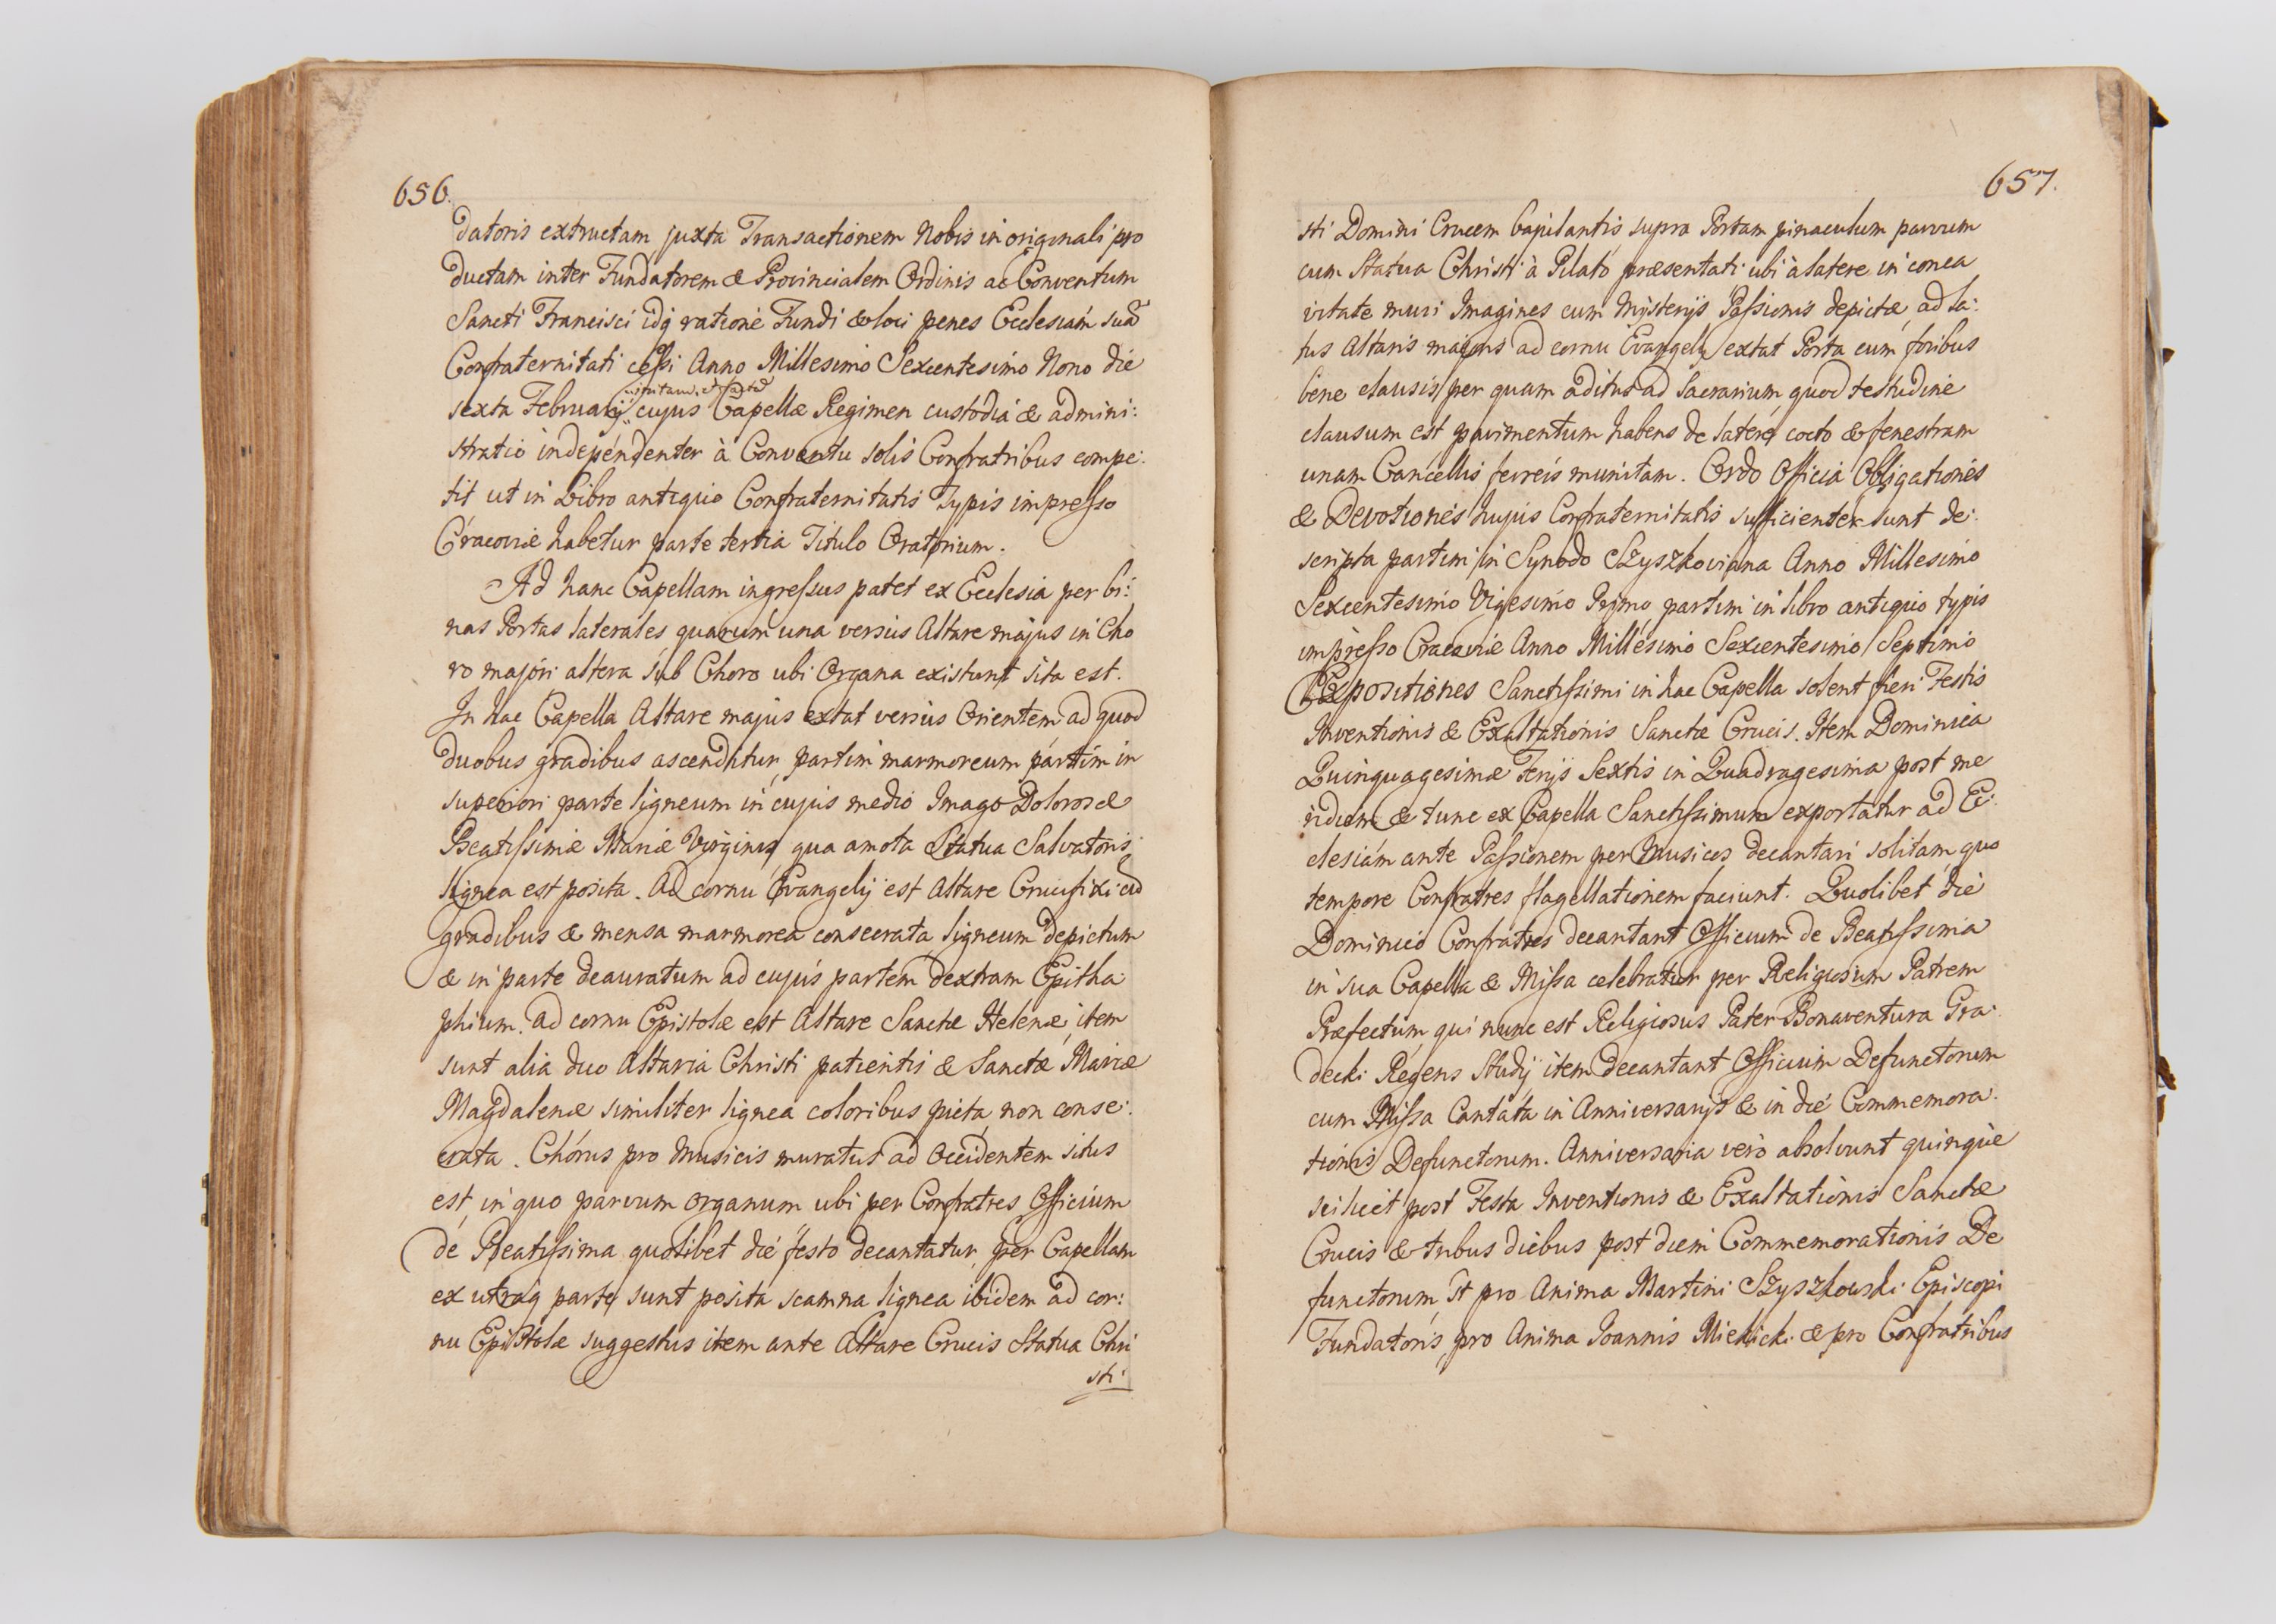 656.
datoris extructam juxta Transactionem Nobis in originali pro
ductam inter Fundatorem & Provincialem Ordinis ac Conventum
Sancti Francisci idq ratione Fundi & loci penes Ecclesiam suã
Confraternitati cessi Anno Millesimo Sexcentesimo Nono die
initam et factã
sexta Februarij cujus Capellæ Regimen custodia & admini:
stratio independenter à Conventu solis Confratribus compe:
tit ut in Libro antiquo Confraternitatis Typis impresso
Cracoviæ habetur parte tertia Titulo Oratorium.
Ad hanc Capellam ingressus patet ex Ecclesia per bi:
nas Portas laterales quarum una versus Altare majus in Cho
ro majori altera sub Choro ubi Organa existunt sita est.
In hac Capella Altare majus extat versus Orientem ad quod
duobus gradibus ascenditur, partim marmoreum partim in
superiori parte ligneum in cujus medio Imago Dolorosæ
Beatissimæ Mariæ Virginis, qua amota Statua Salvatoris
lignea est posita. Ad cornu Evangelij est Altare Crucifixi cũ
gradibus & mensa marmorea consecrata ligneum depictum
& in parte deauratum ad cujus partem dextram Epitha:
phium. Ad cornu Epistolæ est Altare Sanctæ Helenæ, item
sunt alia duo Altaria Christi patientis & Sanctæ Mariæ
Magdalenæ similiter lignea coloribus picta, non conse:
crata. Chorus pro Musicis muratus ad Occidentem situs
est, in quo parvum organum ubi per Confratres Officium
de Beatissima quolibet die festo decantatur, per Capellam
ex utraq parte sunt posita scamna lignea ibidem ad cor:
nu Epistolæ suggestus item ante Altare Crucis Statua Chri
sti:
657.
sti Domini Crucem bajulantis supra Portam pinaculum parvum
cum Statua Christi à Pilato præsentati ubi à latere in conca
vitate muri Imagines cum Mysterijs Passionis depictæ, ad la:
tus Altaris majoris ad cornu Evangelij extat Porta cum foribus
bene clausis per quam aditus ad Sacrarium quod testudine
clausum est pavimentum habens de latere cocto & fenestram
unam Cancellis ferreis munitam. Ordo Officia Obligationes
& Devotiones hujus Confraternitatis sufficienter sunt de:
scripta partim in Synodo Szyszkoviana Anno Millesimo
Sexcentesimo Vigesimo Primo, partim in libro antiquo typis
impresso Cracoviæ Anno Millesimo Sexcentesimo Septimo
Expositiones Sanctissimi in hac Capella solent fieri Festis
Inventionis & Exaltationis Sanctæ Crucis. Item Dominica
Quinquagesimæ Ferijs Sextis in Quadragesima post me
ridiem & tunc ex Capella Sanctissimum exportatur ad Ec:
clesiam ante Passionem per Musicos decantari solitam, quo
tempore Confratres flagellationem faciunt. Quolibet die
Dominico Confratres decantant Officium de Beatissima
in sua Capella & Missa celebratur per Religiosum Patrem
Præfectum, qui nunc est Religiosus Pater Bonaventura Gra:
decki Regens Studij item decantant Officium Defunctorum
cum Missa Cantata in Anniversarijs & in die Commemora:
tionis Defunctorum. Anniversaria vero absolvunt quinque
scilicet post Festa Inventionis & Exaltationis Sanctæ
Crucis & tribus diebus post diem Commemorationis De
functorum, st pro Anima Martini Szyszkowski Episcopi
Fundatoris, pro Anima Joannis Mielicki & pro Confratribus